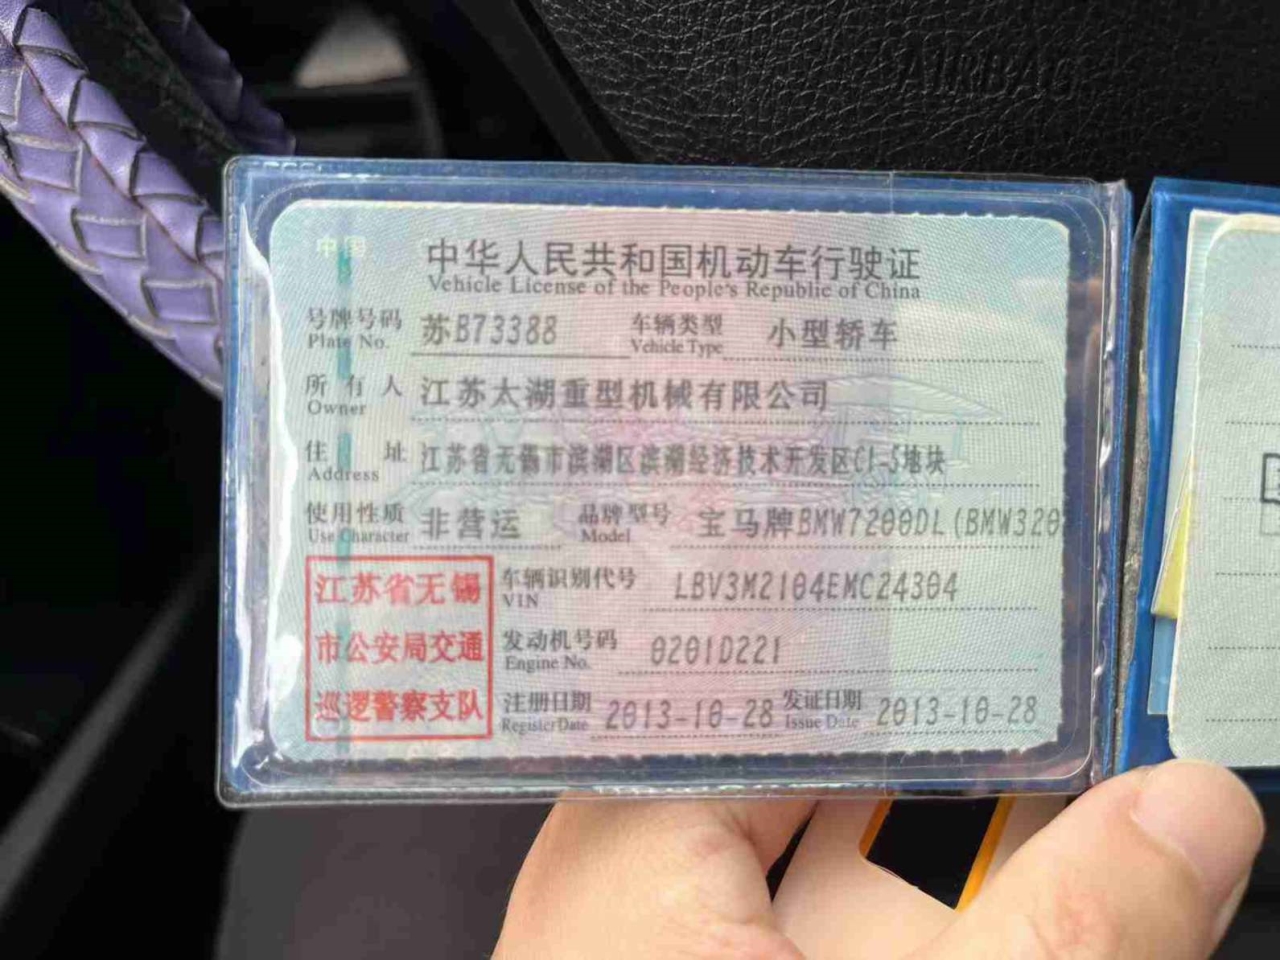 AIRBAG
中国
中华人民共和国机动车行驶证
Vehicle License of the People's Republic of China
号牌号码 苏B73388 车辆类型 小型轿车
Plate No. Vehicle Type
所有人 江苏太湖重型机械有限公司
Owner
住址 江苏省无锡市滨湖区滨湖经济技术开发区C1-5地块
Address
使用性质 非营运 品牌型号 宝马牌BMW7200DL(BMW320
Use Character Model
江苏省无锡
市公安局交通
巡逻警察支队
车辆识别代号 LBV3M2104EMC24304
VIN
发动机号码 0201D221
Engine No.
注册日期 2013-10-28 发证日期 2013-10-28
Register Date Issue Date